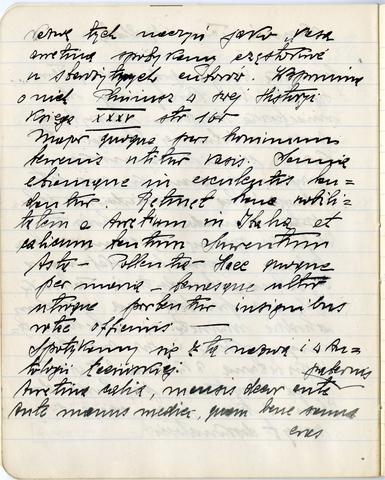 tych naczyń jako „Vasa
aretina spotykamy częstokroć
u starożytnych autorów. Wspomina
o nich Pliniusz w swej Historji
Księga XXXV str 160
Major quoque pars hominum
terrenis utitur vasis. Samia
etiamnunc in esculentis lau=
dantur. Retinet hanc nobili=
tatem et Aretium in Italia et
calicum tantum Surrentum
Asta – Pollentia – Haec quoque
per maria – terrasque ultro
utroque portantur insignibus
rotae officinis
Spotykamy się z tą nazwą i w An=
tologji łacińskiej.
Aretina calix, mensis decor ante paternis
ante manus medici, quam bene sanus
eras